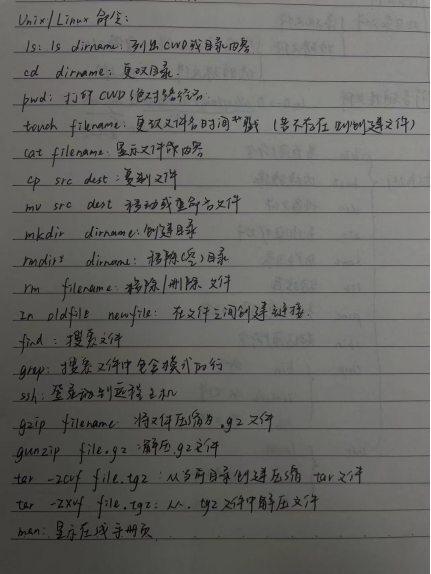 Unix/Linux 命令:
ls: ls dirname: 列出 CWD 或目录内容
cd dirname: 更改目录
pwd: 打印 CWD 绝对路径名
touch filename: 更改文件名时间戳 (若不存在 则创建文件)
cat filename: 显示文件的内容
cp src dest: 复制文件
mv src dest 移动或重命名文件
mkdir dirname: 创建目录
rmdir dirname: 移除(空)目录
rm filename: 移除/删除 文件
ln oldfile newfile: 在文件之间创建链接
find: 搜索文件
grep: 搜索文件中包含模式的行
ssh: 登录到远程主机
gzip filename 将文件压缩为 .gz 文件
gunzip file.gz: 解压.gz文件
tar -zcvf file.tgz: 从当前目录创建压缩 tar 文件
tar -zxvf file.tgz: 从 .tgz 文件中解压文件
man: 显示在线手册页